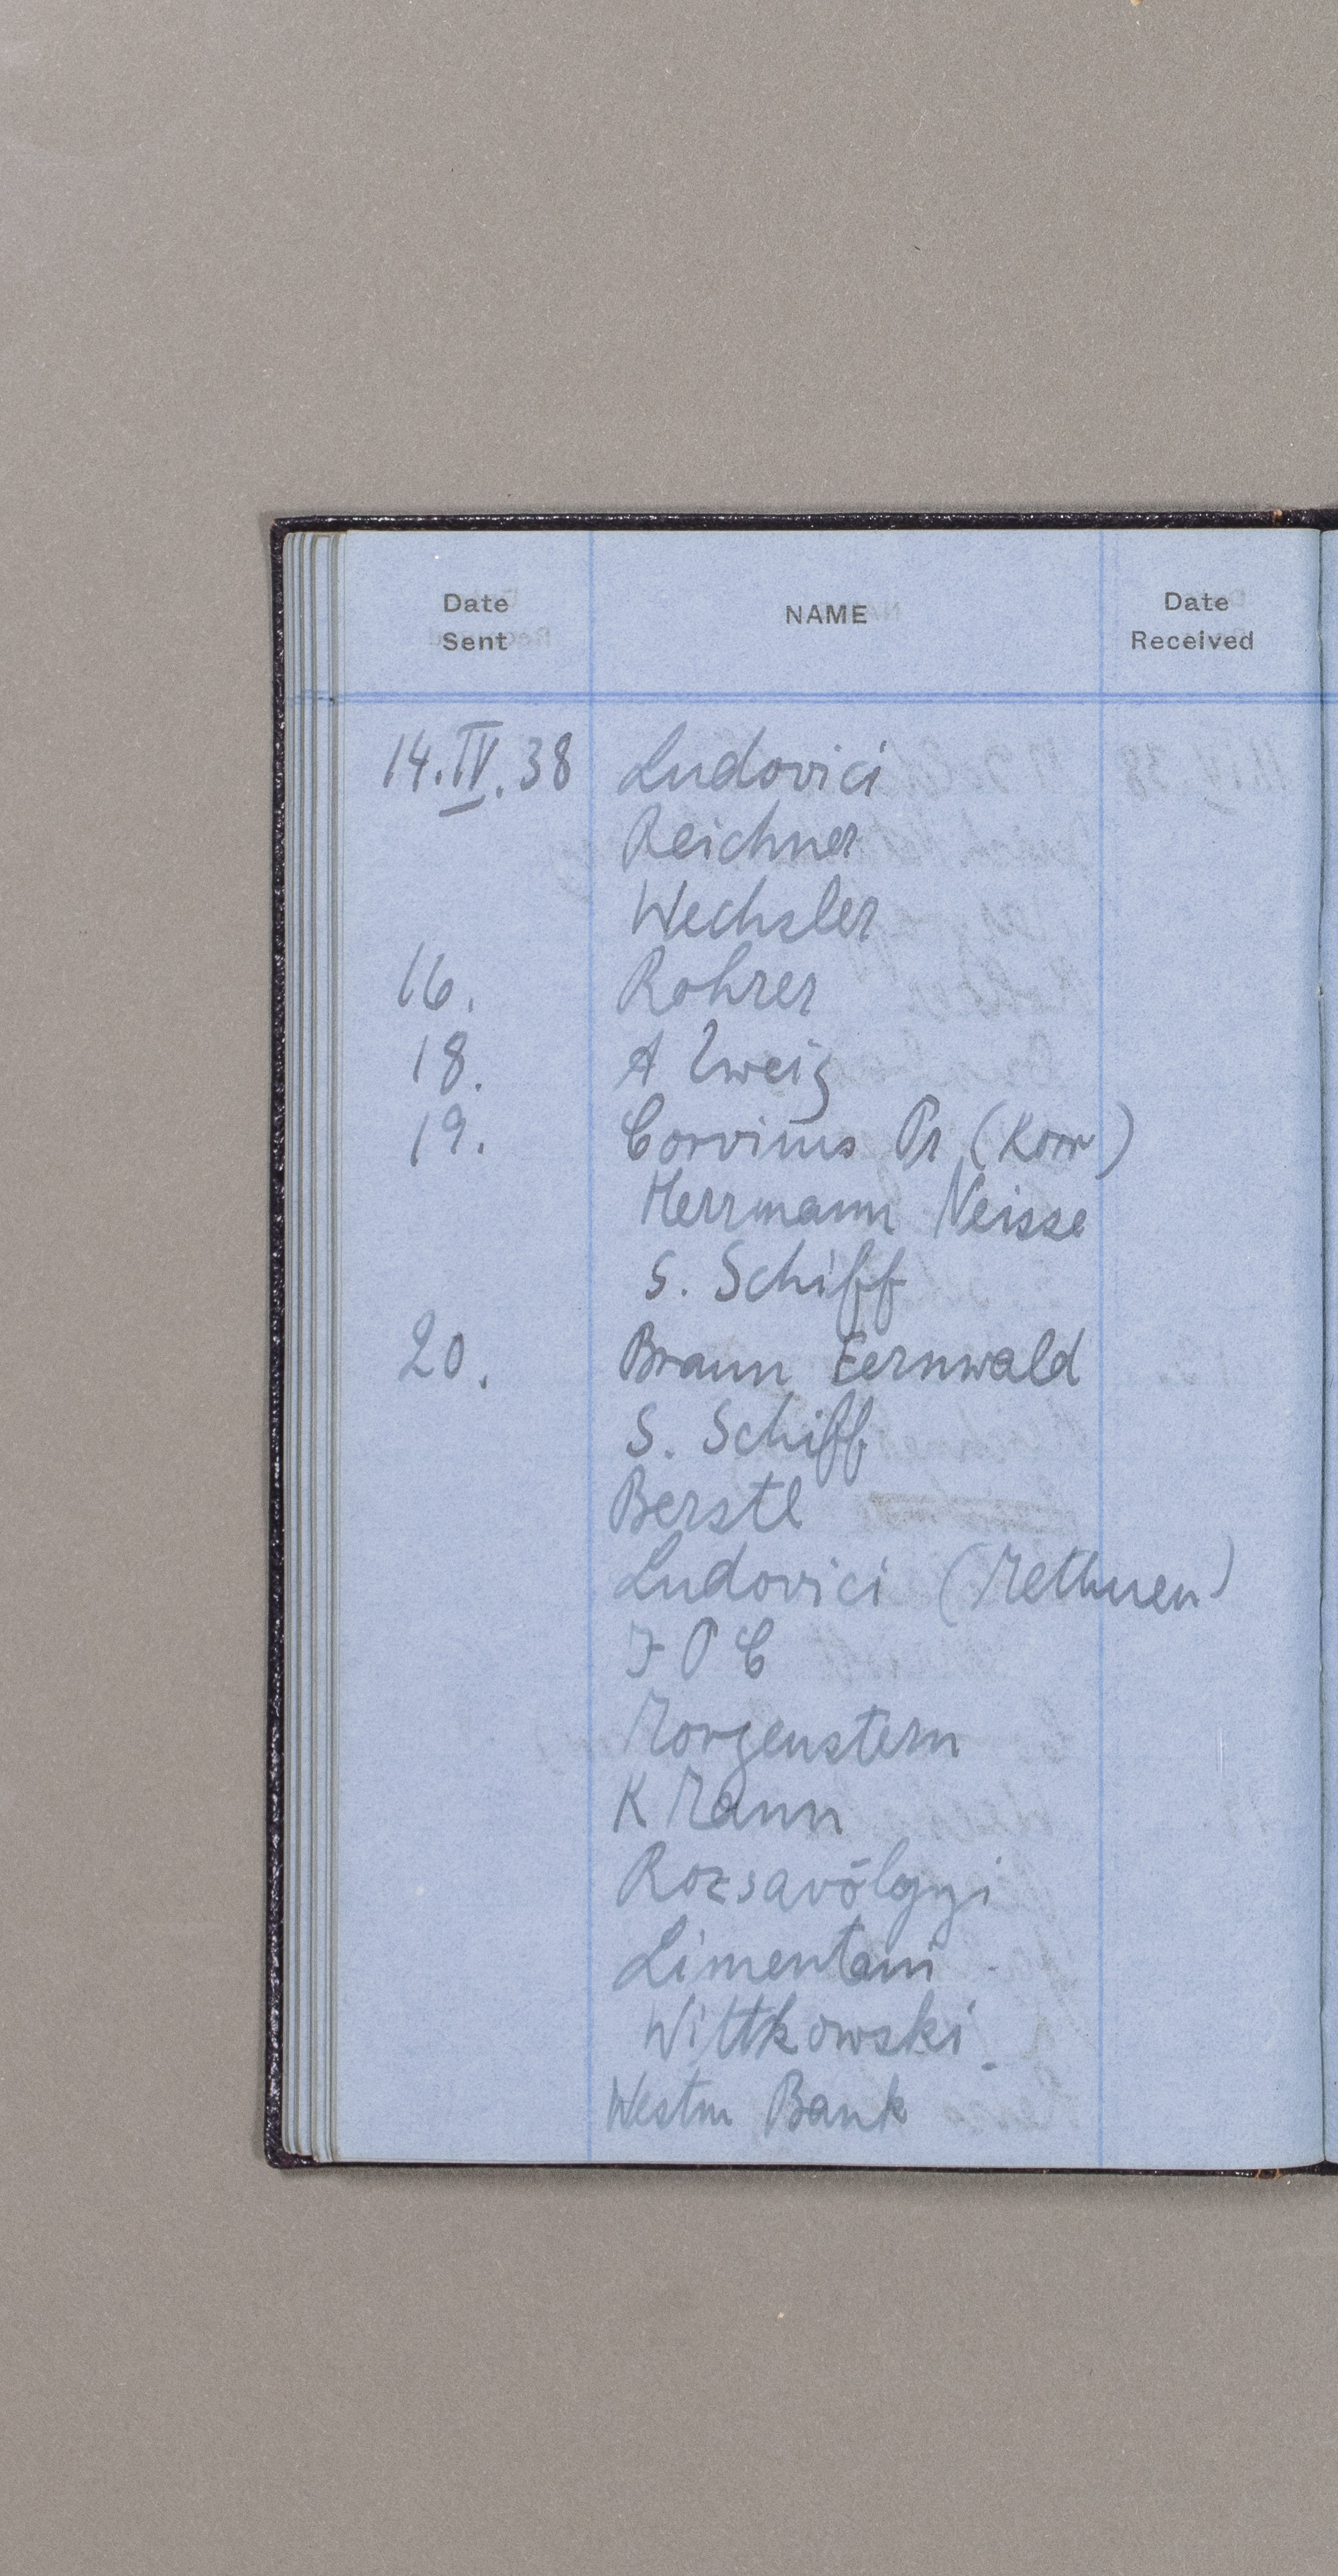 Date Sent NAME Date Received
14.IV.38 Ludovici
Reichner
Wechsler
16. Rohrer
18. A Zweig
19. Corvinus Pr (Korr)
Herrmann Neisse
S. Schiff
20. Braun Fernwald
S. Schiff
Berstl
Ludovici (Methuen)
I P C
Morgenstern
K Mann
Rozsavölgyi
Limentani
Wittkowski
Westm Bank